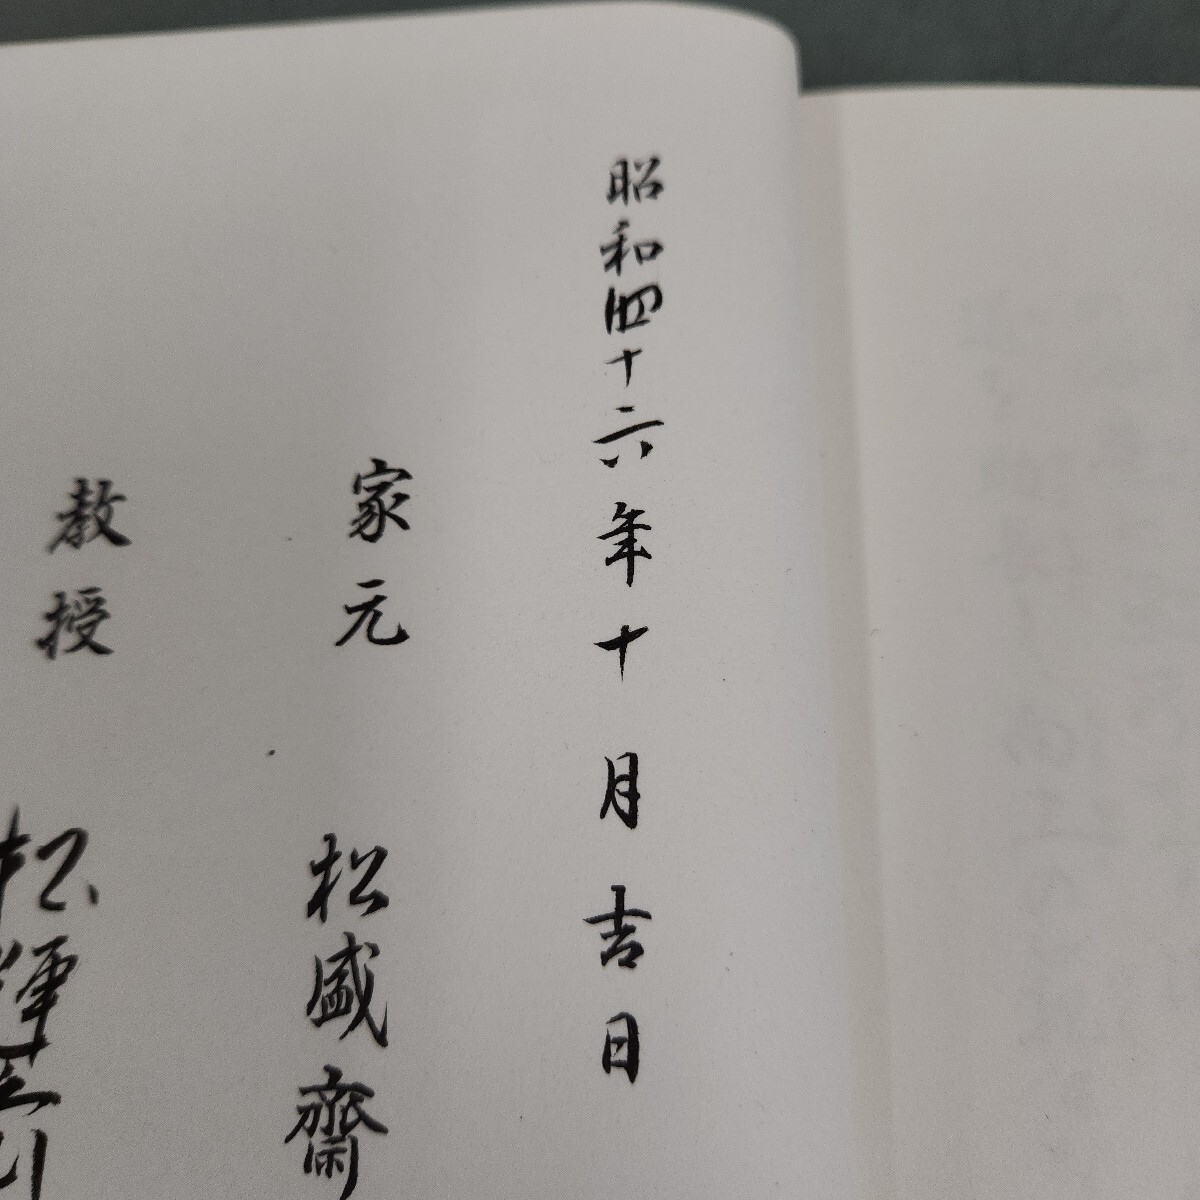 昭和四十六年十月吉日
家元 松盛齋
教授 松